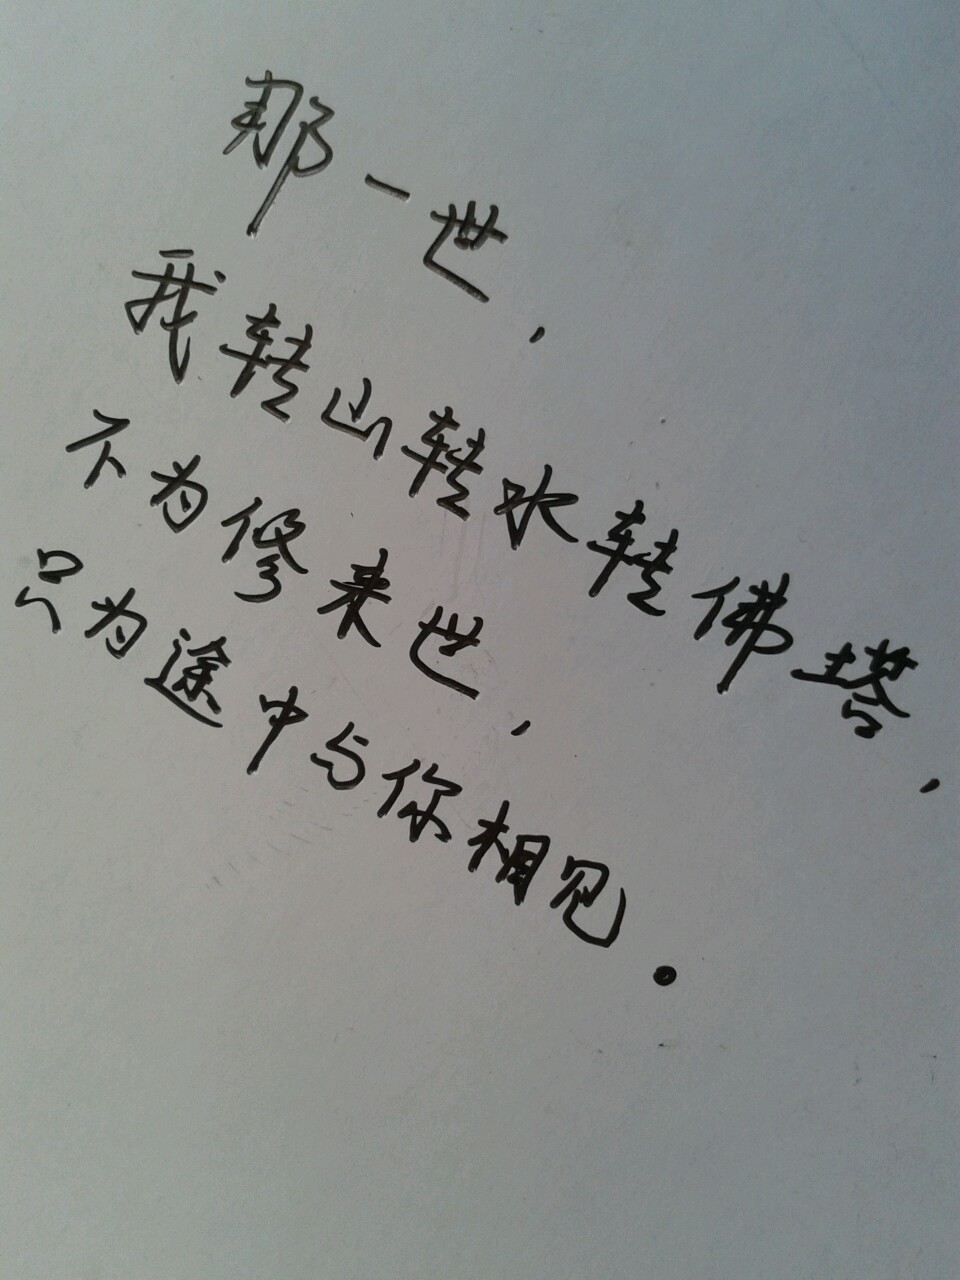 那一世，
我转山转水转佛塔，
不为修来世，
只为途中与你相见。